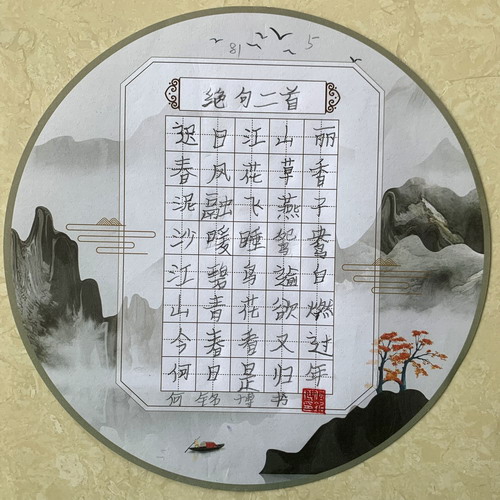 18 5
绝句二首
迟日江山丽
春风花草香
泥融飞燕子
沙暖睡鸳鸯
江碧鸟逾白
山青花欲燃
今春看又过
何日是归年
何锦博书